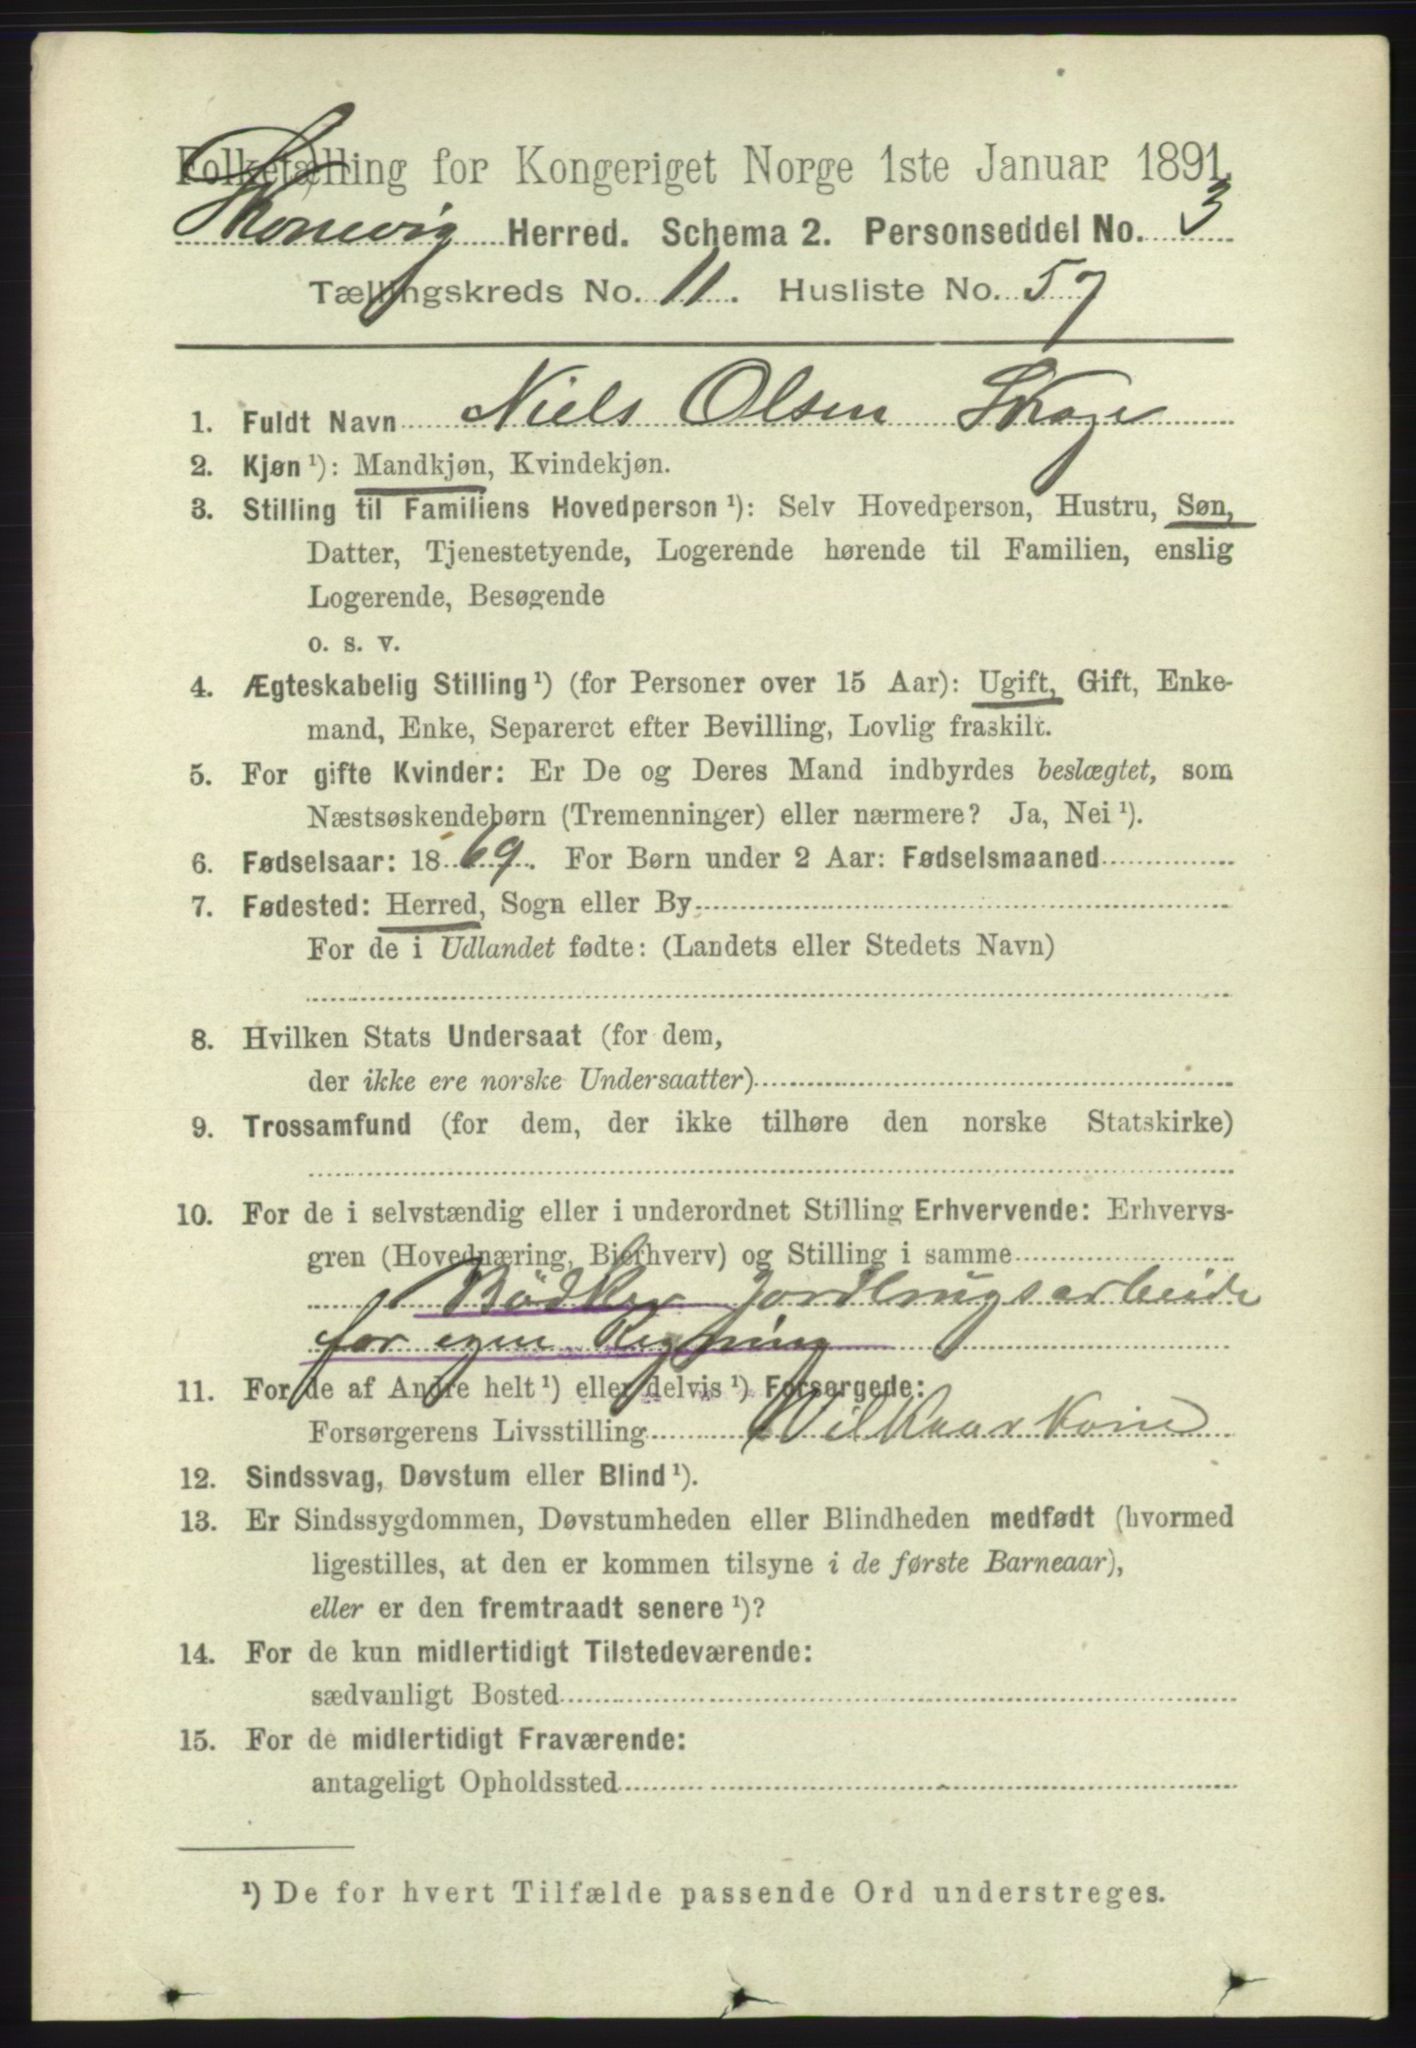 Folketælling for Kongeriget Norge 1ste Januar 1891.
Skonevig Herred. Schema 2. Personseddel No. 3
Tællingskreds No. 11. Husliste No. 57
1. Fuldt Navn Niels Olsen Skoge
2. Kjøn ¹): Mandkjøn, Kvindekjøn.
3. Stilling til Familiens Hovedperson ¹): Selv Hovedperson, Hustru, Søn,
Datter, Tjenestetyende, Logerende hørende til Familien, enslig
Logerende, Besøgende
o. s. v.
4. Ægteskabelig Stilling ¹) (for Personer over 15 Aar): Ugift, Gift, Enke-
mand, Enke, Separeret efter Bevilling, Lovlig fraskilt.
5. For gifte Kvinder: Er De og Deres Mand indbyrdes beslægtet, som
Næstsøskendebørn (Tremenninger) eller nærmere? Ja, Nei ¹).
6. Fødselsaar: 1869. For Børn under 2 Aar: Fødselsmaaned
7. Fødested: Herred, Sogn eller By
For de i Udlandet fødte: (Landets eller Stedets Navn)
8. Hvilken Stats Undersaat (for dem,
der ikke ere norske Undersaatter)
9. Trossamfund (for dem, der ikke tilhøre den norske Statskirke)
10. For de i selvstændig eller i underordnet Stilling Erhvervende: Erhvervs-
gren (Hovednæring, Bierhverv) og Stilling i samme
Bödker Jordbrugsarbeide
for egen Regning
11. For de af Andre helt ¹) eller delvis ¹) Forsørgede:
Forsørgerens Livsstilling Vilkaarskone
12. Sindssvag, Døvstum eller Blind ¹).
13. Er Sindssygdommen, Døvstumheden eller Blindheden medfødt (hvormed
ligestilles, at den er kommen tilsyne i de første Barneaar),
eller er den fremtraadt senere ¹)?
14. For de kun midlertidigt Tilstedeværende:
sædvanligt Bosted
15. For de midlertidigt Fraværende:
antageligt Opholdssted
¹) De for hvert Tilfælde passende Ord understreges.